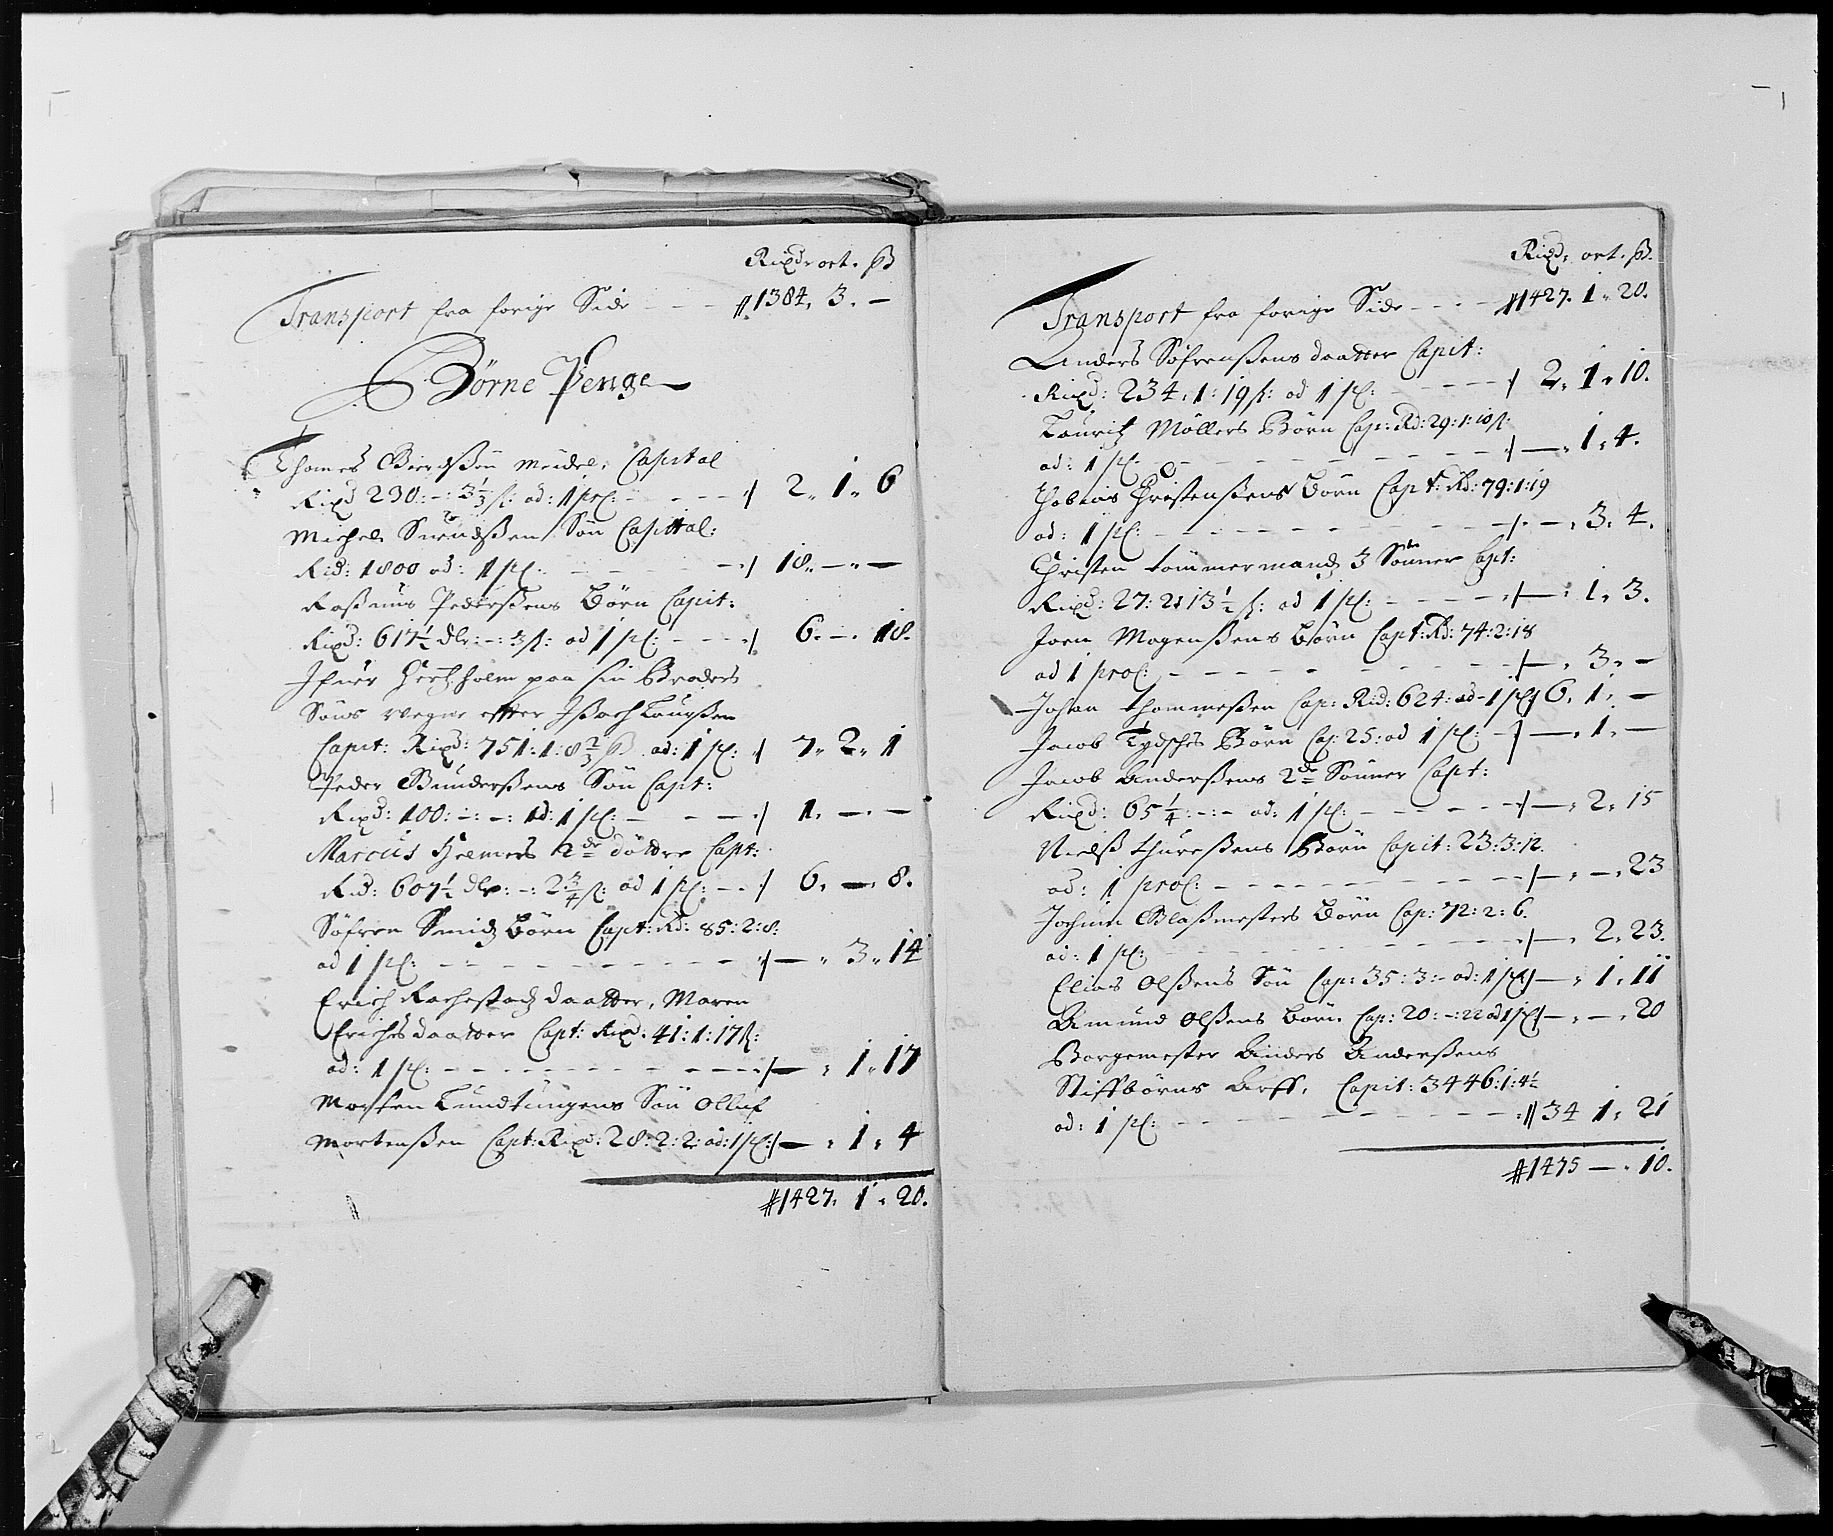 Rixd. ort. ß
Transport fra forige Side - - - #1384. 3. -
Børne Penge
Thomes Meidel, Capital
Rixd 230: -: 3 1/3 ß: ad: 1 proC: - - - - 2. 1. 6
Michel Søn Capittal:
Rid: 1800 ad: 1 pC: - - - - 18. - . -
Rasmus Pedersens Børn Capit:
Rixd: 617 1/2 dlr: -: ß: ad 1 pC: - - - 6. - . 18.
Ifuer paa sin Broders
Søns vegne efter Laurssen
Capit: Rixd: 751: 1: 8 2/3 ß. ad: 1 pC: 7. 2. 1
Peder Gundersens Søn Capt:
Rixd: 100: -: -: ad: 1 pC: - - - 1. - . -
Marcus Helmers 2de døttre Capt:
Rid: 607 1/2 dlr: -: 2 3/4 ß: ad 1 pC: - - 6. - . 8.
Søfren Smids Børn Capt: Rd: 85: 2: 8.
ad 1 pC: - - - - - - - . 3. 14
Erich daatter, Maren
Erichsdaatter Capt: Rixd. 41: 1: 17 ß:
ad: 1 pC: - - - - - - - . 1. 17
Morten Søn Olluf
Mortensen Capt: Rixd: 28: 2: 2: ad: 1 pC: - . 1. 4
#1427. 1. 20.
Rixd. ort. ß.
Transport fra forige Side - - - - #1427. 1. 20.
Anders Søfrensens daatter Capit:
Rixd: 234: 1: 19 ß: ad 1 pC: - - - - 2. 1. 10.
Lauritz Møllers Børn Cap: Rd: 29: 1: 10 ß:
ad: 1 pC. - - - - - - - . 1. 4.
Tobias Christensens Børn Capt: Rd: 79: 1: 19
ad: 1 pC: - - - - - - - . 3. 4.
Christen tømmermands 3 Sønner Capt:
Rixd: 27: 2: 13 1/2 ß: ad 1 pC: - - - - . 1. 3.
Joen Mogensens Børn Capt: Rd: 74: 2: 18
ad 1 proC: - - - - - - . 3. -
Johan Thommesen Cap: Rid: 624: ad 1 pC 6. 1. -
Jacob Tydsches Børn Cap: 25: ad 1 pC: - - . 1. -
Jacob Andersens 2de Sønner Capt:
Rixd: 65 1/4: -: - ad: 1 pC: - - - - . 2. 15
Nielß thuresens Børn Capit: 23: 3: 12.
ad: 1 proC: - - - - - - . - . 23
Jochum Glaßmesters Børn Cap: 72: 2: 6.
ad: 1 pC: - - - - - - . 2. 23.
Elias Olsens Søn Cap: 35: 3: - ad: 1 pC - . 1. 11
Amund Olsens Børn Cap: 20: -: 22 ad 1 pC - . - . 20
Borgemester Anders Andersens
Stifbørns Arff. Capit: 3446: 1: 4 1/2
ad: 1 pC: - - - - - - #34 1. 21
#1475 - . 10.